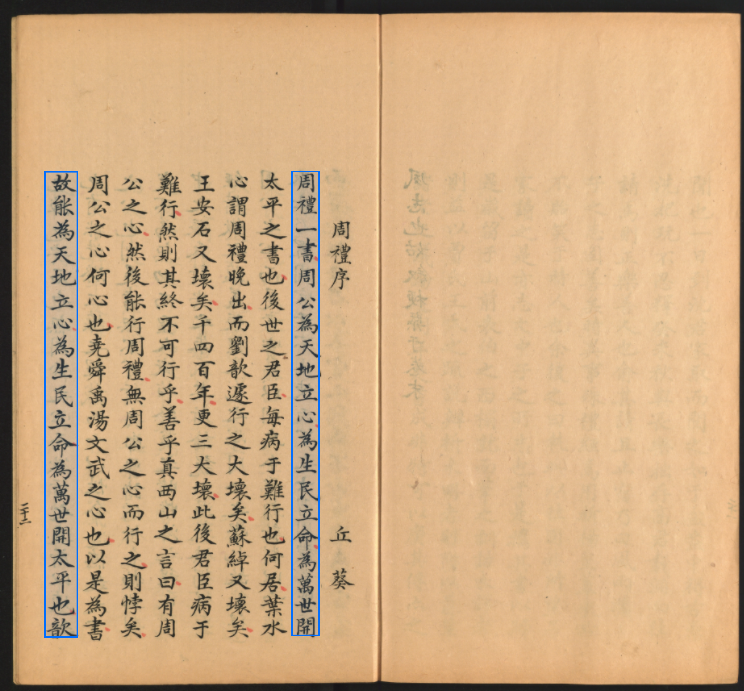 周禮序
丘葵
周禮一書周公為天地立心為生民立命為萬世開
太平之書也後世之君臣每病于難行也何居葉水
心謂周禮晚出而劉歆遽行之大壞矣蘇綽又壞矣
王安石又壞矣千四百年更三大壞此後君臣病于
難行然則其終不可行乎善乎真西山之言曰有周
公之心然後能行周禮無周公之心而行之則悖矣
周公之心何心也堯舜禹湯文武之心也以是為書
故能為天地立心為生民立命為萬世開太平也歆
二十二